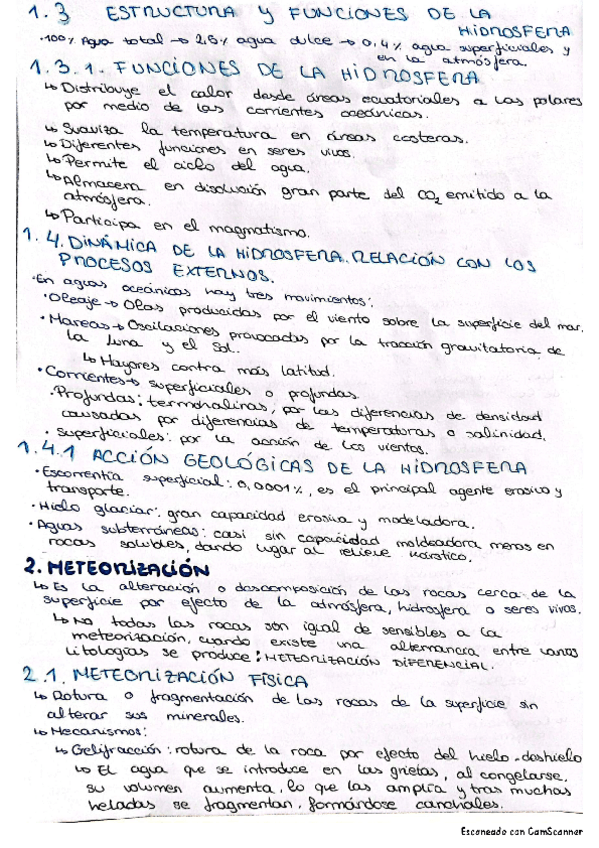 1.3 ESTRUCTURA Y FUNCIONES DE LA
HIDROSFERA
·100% Agua total → 2,6% agua dulce → 0,4% agua superficiales y
en la atmósfera.
1.3.1. FUNCIONES DE LA HIDROSFERA
↳ Distribuye el calor desde áreas ecuatoriales a las polares
por medio de las corrientes oceánicas.
↳ Suaviza la temperatura en áreas costeras.
↳ Diferentes funciones en seres vivos.
↳ Permite el ciclo del agua.
↳ Almacena en disolución gran parte del CO₂ emitido a la
atmósfera.
↳ Participa en el magmatismo.
1.4. DINÁMICA DE LA HIDROSFERA. RELACIÓN CON LOS
PROCESOS EXTERNOS.
·En aguas oceánicas hay tres movimientos:
·Oleaje → Olas producidas por el viento sobre la superficie del mar.
·Mareas → Oscilaciones provocadas por la tracción gravitatoria de
la Luna y el Sol.
↳ Mayores contra más latitud.
·Corrientes → superficiales o profundas
·Profundas: termohalinas, por las diferencias de densidad
causadas por diferencias de temperaturas o salinidad.
·Superficiales: por la acción de los vientos.
1.4.1 ACCIÓN GEOLÓGICAS DE LA HIDROSFERA
·Escorrentía superficial: 0,0001%, es el principal agente erosivo y
transporte.
·Hielo glaciar: gran capacidad erosiva y modeladora.
·Aguas subterráneas: casi sin capacidad moldeadora menos en
rocas solubles, dando lugar al relieve kárstico.
2. METEORIZACIÓN
↳ Es la alteración o descomposición de las rocas cerca de la
superficie por efecto de la atmósfera, hidrosfera o seres vivos.
↳ No todas las rocas son igual de sensibles a la
meteorización, cuando existe una alternancia entre varias
litologías se produce: METEORIZACIÓN DIFERENCIAL.
2.1. METEORIZACIÓN FÍSICA
↳ Rotura o fragmentación de las rocas de la superficie sin
alterar sus minerales.
↳ Mecanismos:
↳ Gelifracción: rotura de la roca por efecto del hielo-deshielo
↳ El agua que se introduce en las grietas, al congelarse,
su volumen aumenta, lo que las amplía y tras muchas
heladas se fragmentan, formándose canchales.
Escaneado con CamScanner